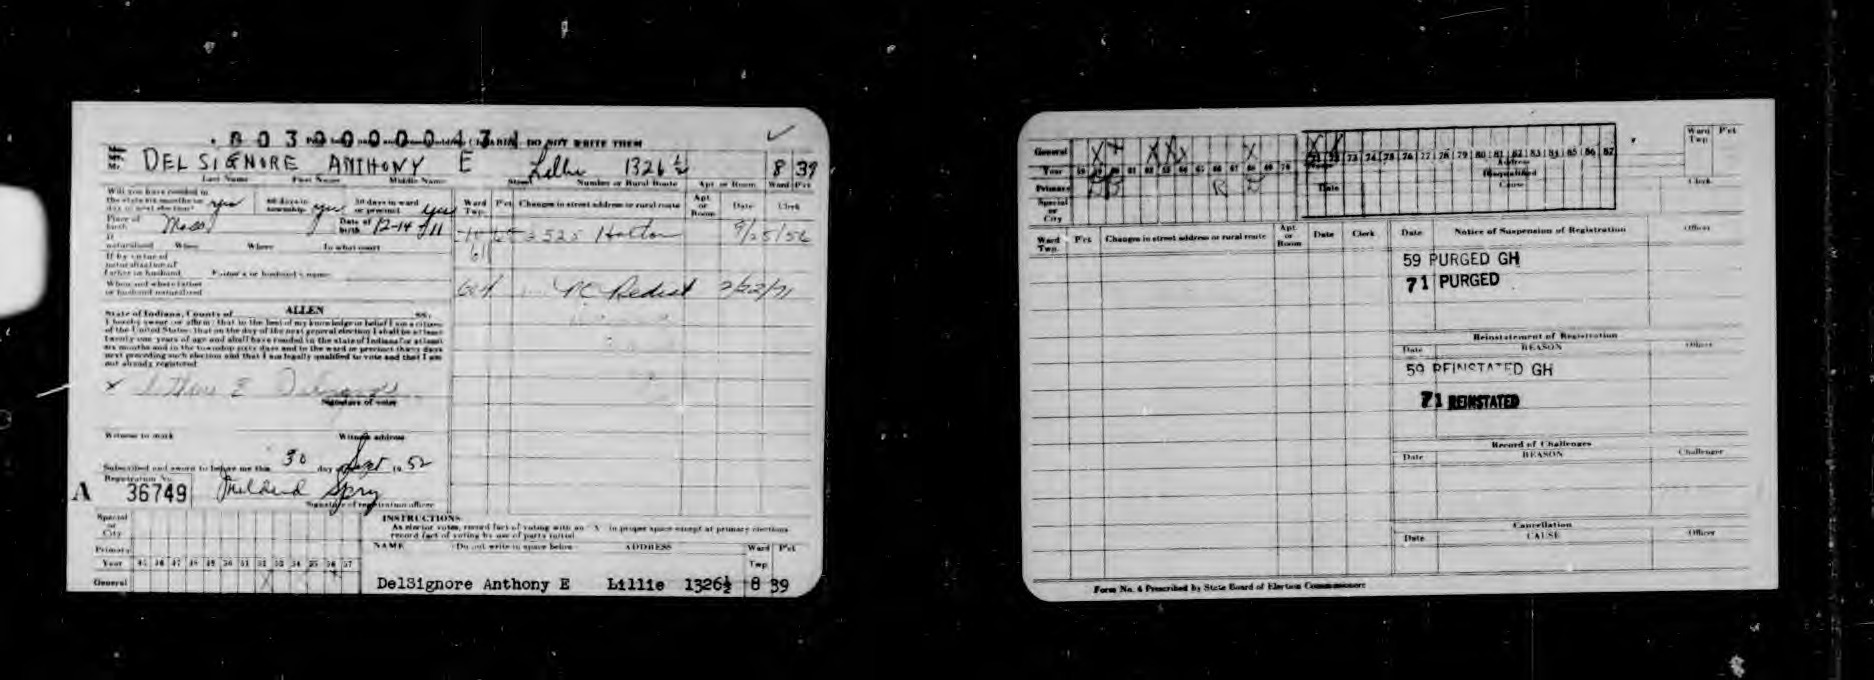 DO NOT WRITE THEM
DEL SIGNORE ANTHONY E Lillie 1326½ 8 39
Last Name First Name Middle Name Street Number or Rural Route Apt. or Room Ward Pct
Will you have resided in the state six months on day of next election? yes 60 days in township yes 30 days in ward or precinct yes
Ward Twp. Pct Changes in street address or rural route Apt. or Room Date Clerk
Place of birth Mass Date of birth 12-14-11
2525 Holton 9/25/56
If naturalized When Where To what court
If by virtue of naturalization of father or husband Father's or husband's name
When and where father or husband naturalized
Redist 2/22/71
State of Indiana, County of ALLEN SS:
I hereby swear (or affirm) that to the best of my knowledge or belief I am a citizen
of the United States; that on the day of the next general election I shall be at least
twenty one years of age and shall have resided in the state of Indiana for at least
six months and in the township sixty days and in the ward or precinct thirty days
next preceding such election and that I am legally qualified to vote and that I am
not already registered
X
Signature of voter
Witness to mark Witness address
Subscribed and sworn to before me this 30 day Sept 1952
Registration No.
A 36749 Mildred Spry
Signature of registration officer
INSTRUCTIONS
As elector votes, record fact of voting with an X in proper space except at primary elections
record fact of voting by use of party initial
Special or City
Primary
Year 45 46 47 48 49 50 51 52 53 54 55 56 57
General
NAME Do not write in space below ADDRESS Ward Twp. Pct
DelSignore Anthony E Lillie 1326½ 8 39
General
Year
Primary
Special or City
73 74 75 76 77 78 79 80 81 82 83 84 85 86 87
Date Disqualified Cause
Ward Twp. Pct
Clerk
Ward Twp. Pct Changes in street address or rural route Apt. or Room Date Clerk
Date Notice of Suspension of Registration Officer
59 PURGED GH
71 PURGED
Reinstatement of Registration
Date REASON Officer
59 REINSTATED GH
71 REINSTATED
Record of Challenges
Date REASON Challenger
Cancellation
Date CAUSE Officer
Form No. 4 Prescribed by State Board of Election Commissioners